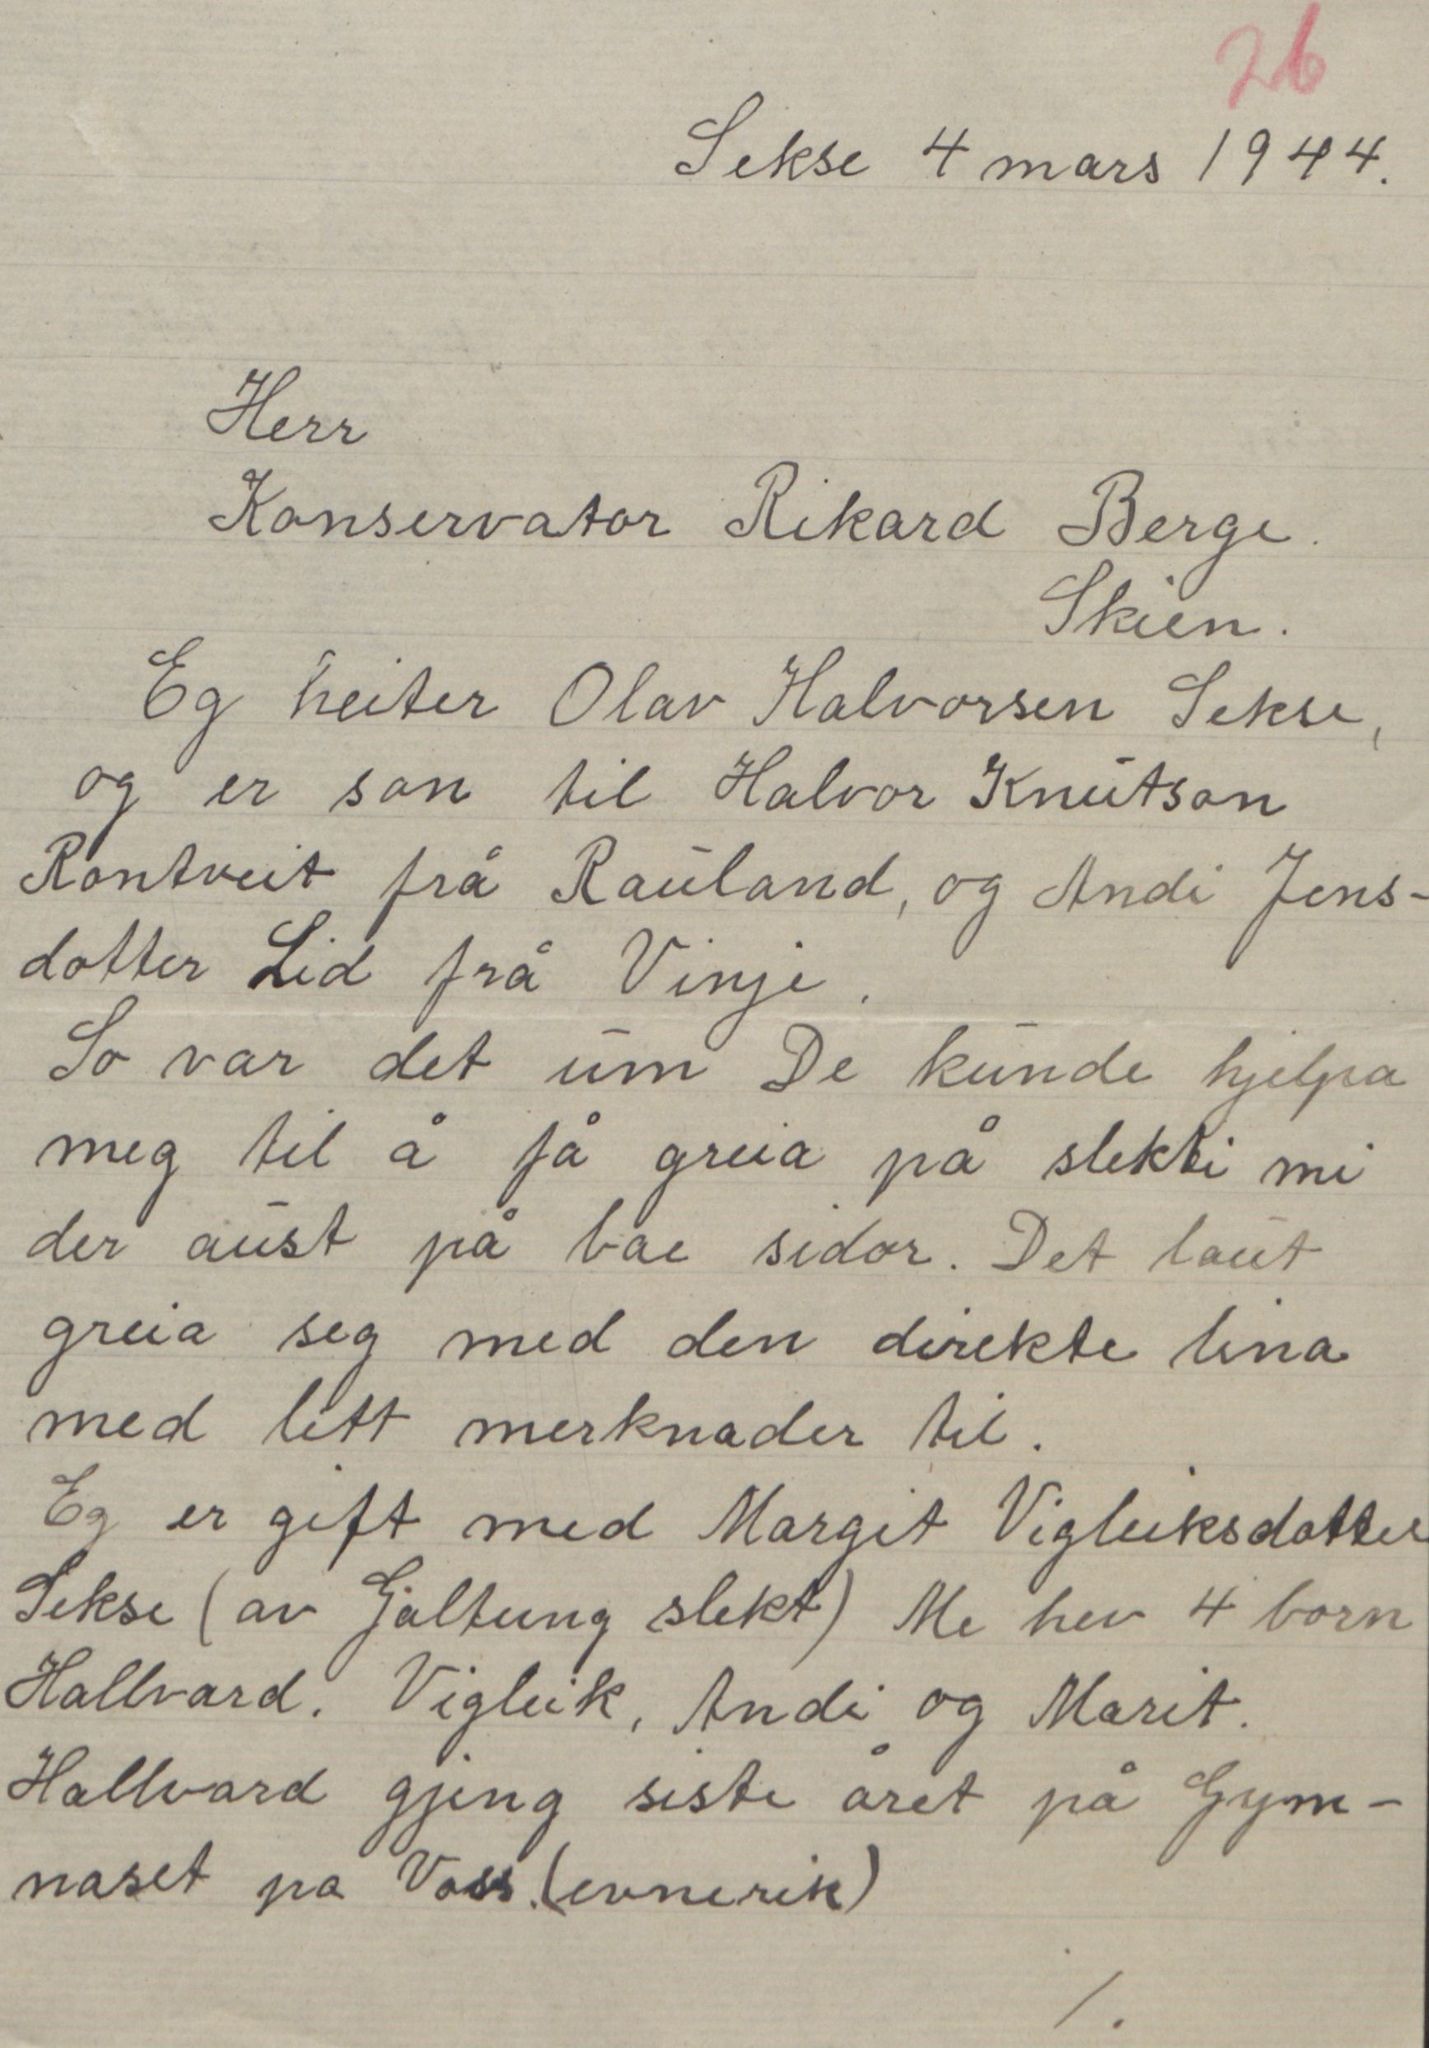 26
Sekse 4 mars 1944.
Herr
Konservator Rikard Berge.
Skien.
Eg heiter Olav Halvorsen Sekse,
og er son til Halvor Knutson
Rontveit frå Rauland, og Andi Jens-
dotter Lid frå Vinje.
So var det um De kunde hjelpa
meg til å få greia på slekti mi
der aust på bae sidor. Det laut
greia seg med den direkte lina
med litt merknader til.
Eg er gift med Margit Vigleiksdotter
Sekse (av Gjaltung slekt) Me hev 4 born
Hallvard. Vigleik, Andi og Marit.
Hallvard gjeng siste året på Gym-
naset pa Voss. (evnerik)
1.